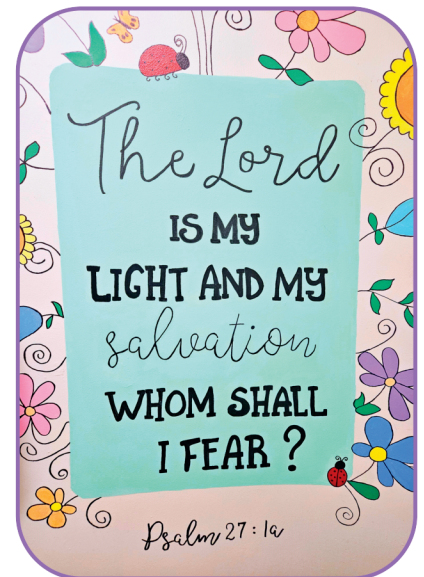 The Lord
IS MY
LIGHT AND MY
salvation
WHOM SHALL
I FEAR?
Psalm 27:1a